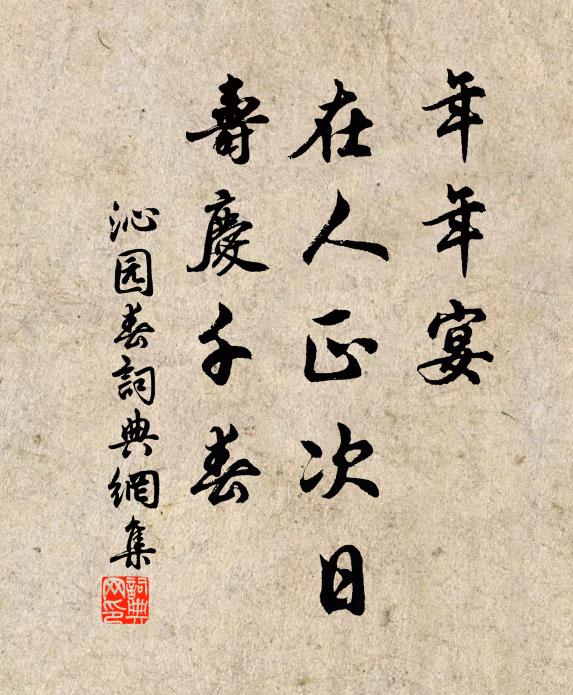 年年宴
在人正次日
壽慶千春
沁园春詞典網集
詞典网印